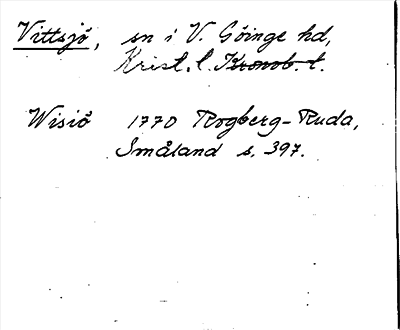 Vittsjö, sn i V. Göinge hd,
Krist. l. Kronob. l.
Wisiö 1770 Rogberg-Ruda,
Småland s. 397.